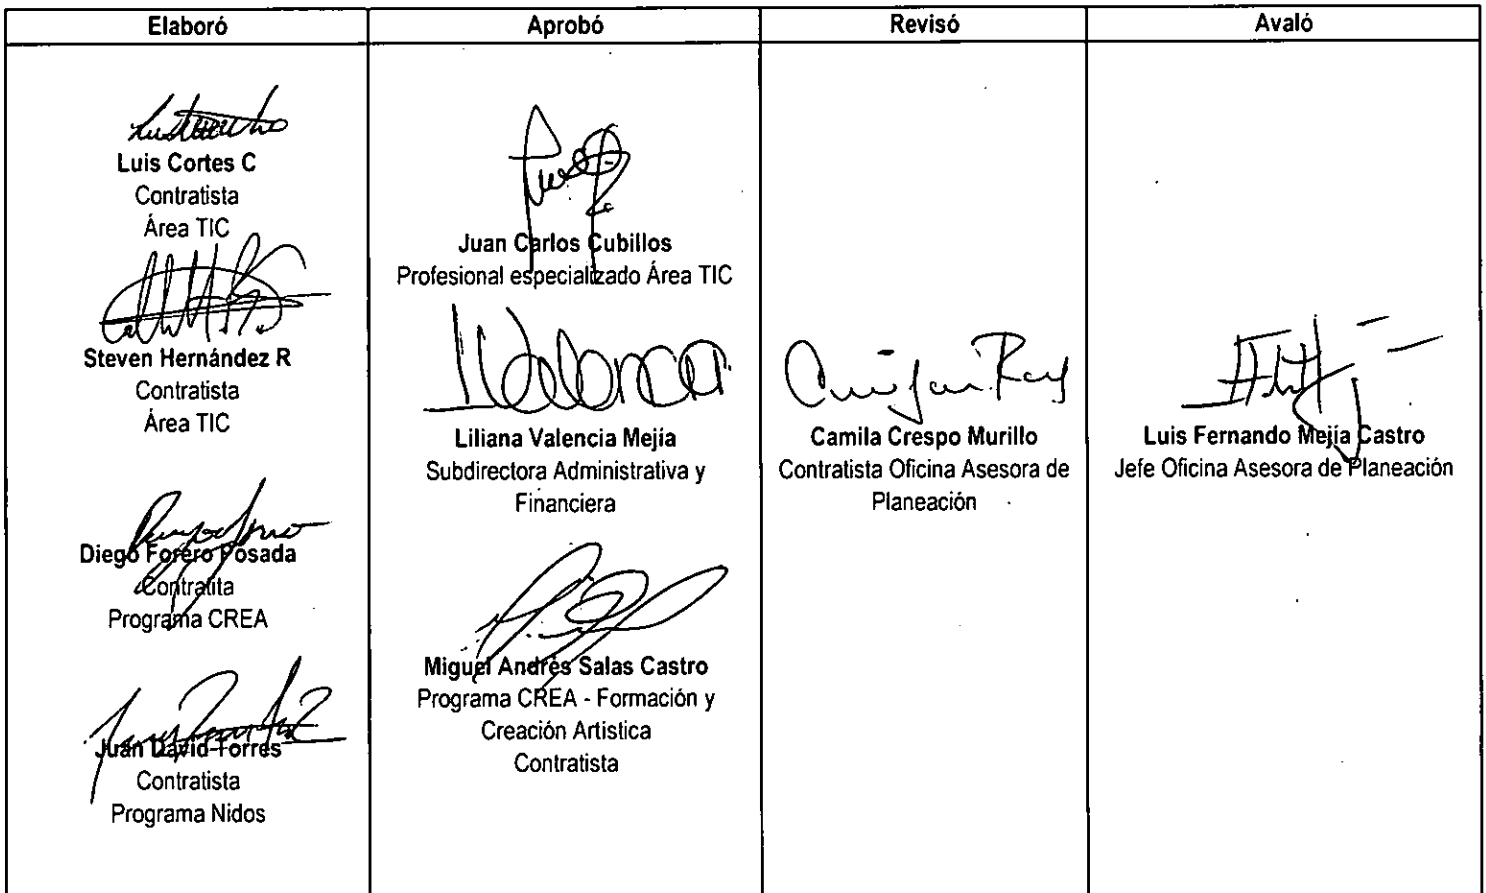 Elaboró
Aprobó
Revisó
Avaló
Luis Cortes C
Contratista
Área TIC
Steven Hernández R
Contratista
Área TIC
Diego Forero Posada
Contratita
Programa CREA
Juan David Torres
Contratista
Programa Nidos
Juan Carlos Cubillos
Profesional especializado Área TIC
Liliana Valencia Mejía
Subdirectora Administrativa y
Financiera
Miguel Andrés Salas Castro
Programa CREA - Formación y
Creación Artistica
Contratista
Camila Crespo Murillo
Contratista Oficina Asesora de
Planeación
Luis Fernando Mejía Castro
Jefe Oficina Asesora de Planeación